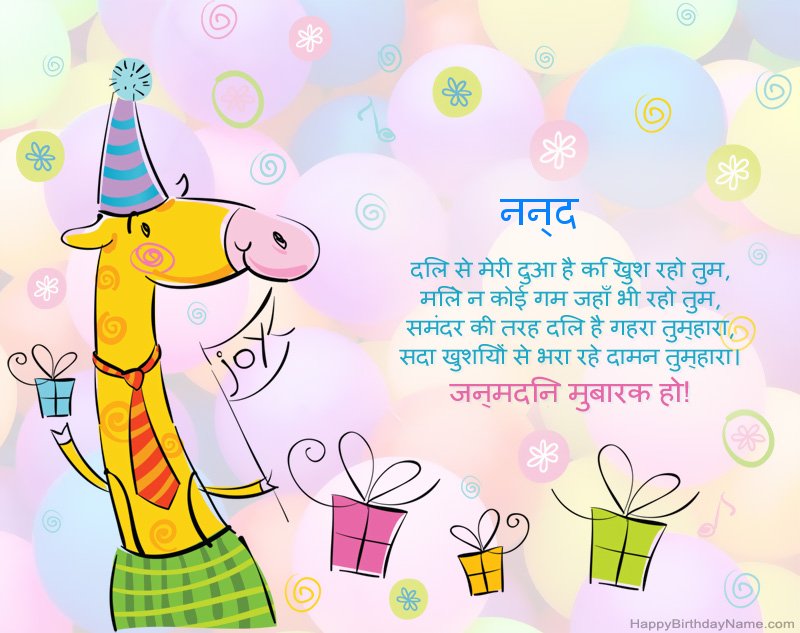 नन्द
दिल से मेरी दुआ है कि खुश रहो तुम,
मिले न कोई गम जहाँ भी रहो तुम,
समंदर की तरह दिल है गहरा तुम्हारा,
सदा खुशियों से भरा रहे दामन तुम्हारा।
जन्मदिन मुबारक हो!
joy
HappyBirthdayName.com